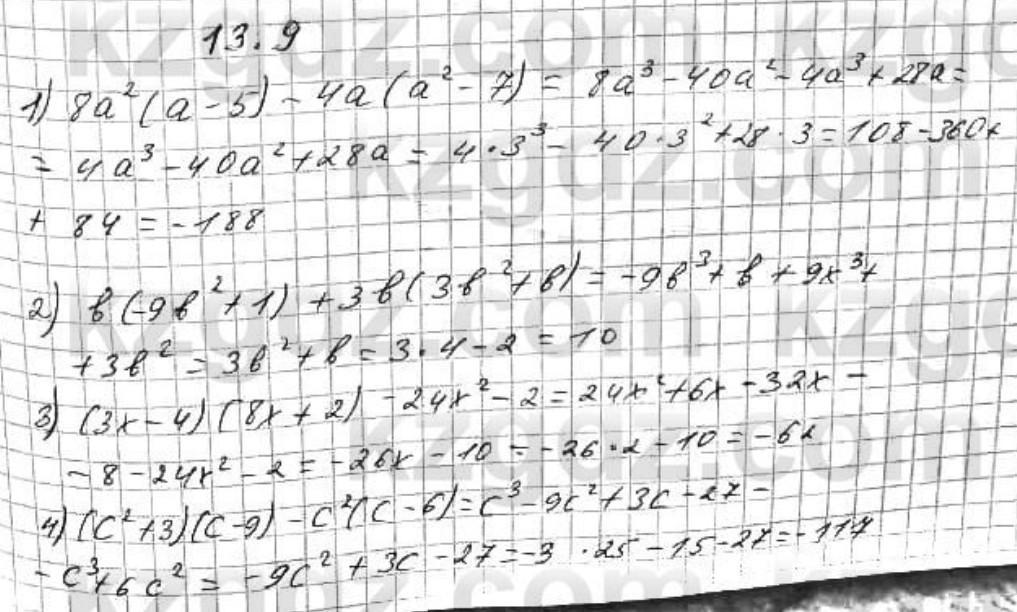 13.9
1) 8a²(a-5) - 4a(a²-7) = 8a³ - 40a² - 4a³ + 28a =
= 4a³ - 40a² + 28a = 4·3³ - 40·3² + 28·3 = 108 - 360 +
+ 84 = -188
2) b(-9b²+1) + 3b(3b²+b) = -9b³ + b + 9x³ +
+3b² = 3b² + b = 3·4 - 2 = 10
3) (3x-4)(8x+2) - 24x² - 2 = 24x² + 6x - 32x -
- 8 - 24x² - 2 = -26x - 10 = -26·2 - 10 = -62
4) (c²+3)(c-9) - c²(c-6) = c³ - 9c² + 3c - 27 -
- c³ + 6c² = -9c² + 3c - 27 = -3·25 - 15 - 27 = -117
kzgdz.com